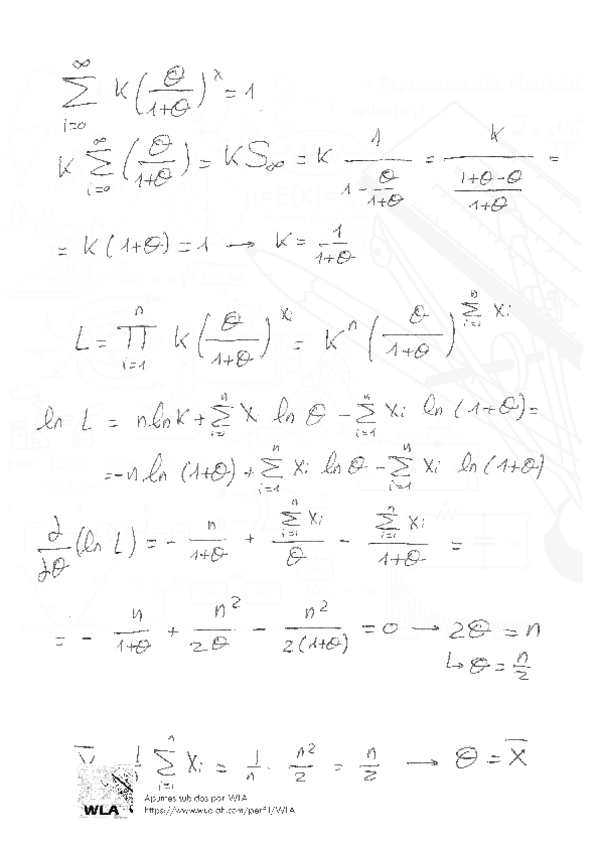 ∑_{i=0}^{∞} K(θ/(1+θ))^x = 1
K ∑_{i=0}^{∞} (θ/(1+θ)) = K S_∞ = K 1/(1 - θ/(1+θ)) = K/((1+θ-θ)/(1+θ)) =
= K(1+θ) = 1 → K = 1/(1+θ)
L = ∏_{i=1}^{n} K(θ/(1+θ))^{xi} = K^n (θ/(1+θ))^{∑_{i=1}^{n} xi}
ln L = n ln K + ∑_{i=1}^{n} X ln θ - ∑_{i=1}^{n} Xi ln (1+θ) =
= -n ln (1+θ) + ∑_{i=1}^{n} Xi ln θ - ∑_{i=1}^{n} Xi ln (1+θ)
∂/∂θ (ln L) = - n/(1+θ) + ∑_{i=1}^{n} Xi/θ - ∑_{i=1}^{n} Xi/(1+θ) =
= - n/(1+θ) + n²/(2θ) - n²/(2(1+θ)) = 0 → 2θ = n
↳ θ = n/2
1/n ∑_{i=1}^{n} Xi = 1/n · n²/2 = n/2 → θ = X̄
WLA
Apuntes subidos por WLA